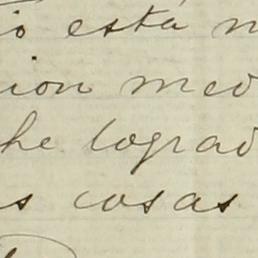 ió está n
ion med
he lograd
s cosas